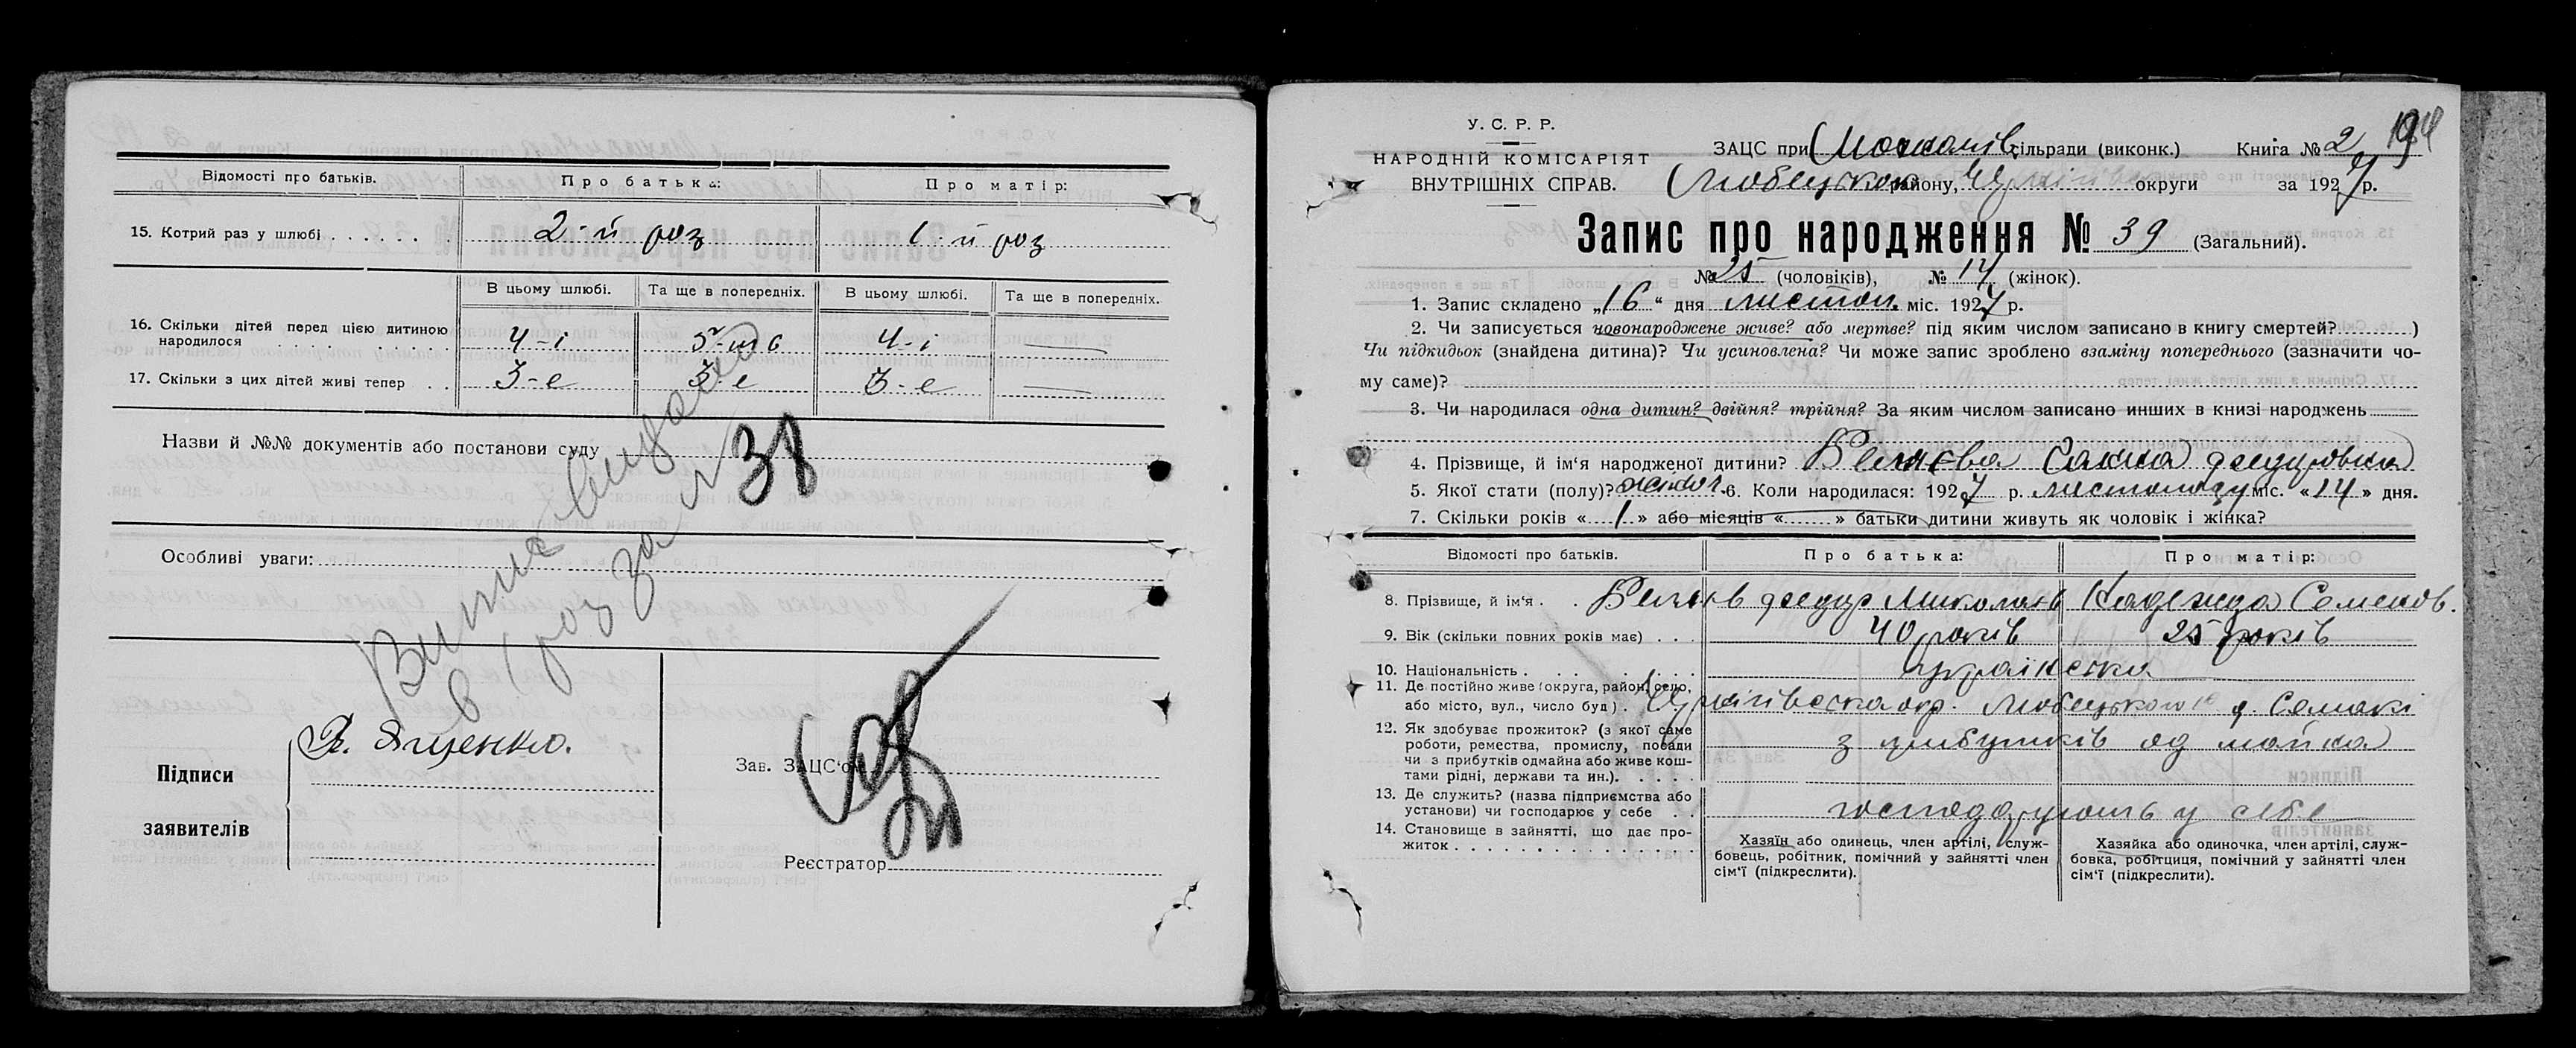 Відомості про батьків. Про батька: Про матір:
15. Котрий раз у шлюбі 2-й раз 1-й раз
В цьому шлюбі. Та ще в попередніх. В цьому шлюбі. Та ще в попередніх.
16. Скільки дітей перед цією дитиною
народилося 4-і 5-ть 4-і —
17. Скільки з цих дітей живі тепер 3-е 3-е 3-е —
Назви й №№ документів або постанови суду
Особливі уваги:
за №38
Підписи
заявителів
Я. Яценко.
Зав. ЗАЦС'ом
Реєстратор
У. С. Р. Р.
НАРОДНІЙ КОМІСАРІЯТ
ВНУТРІШНІХ СПРАВ.
ЗАЦС при сільради (виконк.) Книга № 2
Любецького району, округи за 1927 р.
Запис про народження № 39 (Загальний).
№ 25 (чоловіків), № 14 (жінок).
1. Запис складено „16" дня листоп. міс. 1927 р.
2. Чи записується новонароджене живе? або мертве? під яким числом записано в книгу смертей? )
Чи підкидьок (знайдена дитина)? Чи усиновлена? Чи може запис зроблено взаміну попереднього (зазначити чо-
му саме)?
3. Чи народилася одна дитин? двійня? трійня? За яким числом записано инших в книзі народжень
4. Прізвище, й ім'я народженої дитини?
5. Якої стати (полу)? жіноч. 6. Коли народилася: 1927 р. листопаду міс. «14» дня.
7. Скільки років «1» або місяців « » батьки дитини живуть як чоловік і жінка?
Відомості про батьків. Про батька: Про матір:
8. Прізвище, й ім'я Надежда Семенов.
9. Вік (скільки повних років має) 40 років 25 років
10. Національність українська
11. Де постійно живе (округа, район, село,
або місто, вул., число буд) Чернігівська окр. Любецького д. Семаки
12. Як здобуває прожиток? (з якої саме
роботи, ремества, промислу, посади
чи з прибутків одмайна або живе кош-
тами рідні, держави та ин.). з прибутків од майна
13. Де служить? (назва підприємства або
установи) чи господарює у себе господарують у себе
14. Становище в зайнятті, що дає про-
житок
Хазяїн або одинець, член артілі, служ-
бовець, робітник, помічний у зайнятті член
сім'ї (підкреслити).
Хазяйка або одиночка, член артілі, служ-
бовка, робітциця, помічний у зайнятті член
сім'ї (підкреслити).